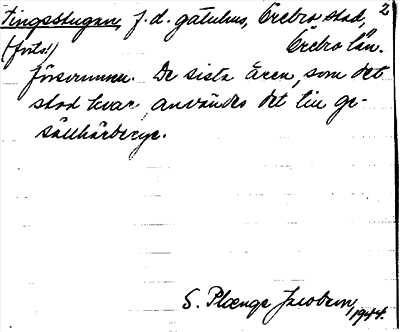 Tingsstugan, f.d. gatuhus, Örebro stad, 2
(forts!) Örebro län.
försvunnen. De sista åren, som det
stod kvar, användes det till ge-
sällhärberge.
S. Plænge Jacobson, 1944.